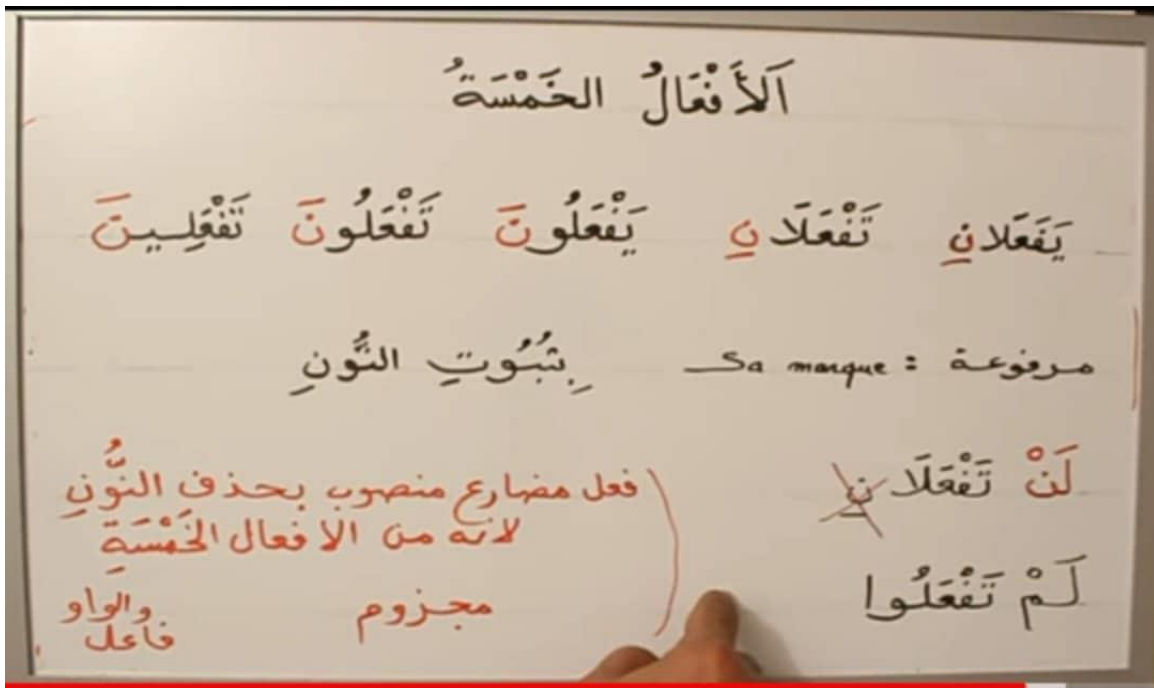 اَلأَفْعَالُ الخَمْسَةُ
يَفْعَلانِ تَفْعَلَانِ يَفْعَلُونَ تَفْعَلُونَ تَفْعَلِينَ
مرفوعة : Sa marque بِثُبُوتِ النُّونِ
لَنْ تَفْعَلَان
فعل مضارع منصوب بحذف النُّونِ
لانه من الافعال الخَمْسَةِ
لَمْ تَفْعَلُوا
مجزوم
والواو
فاعل